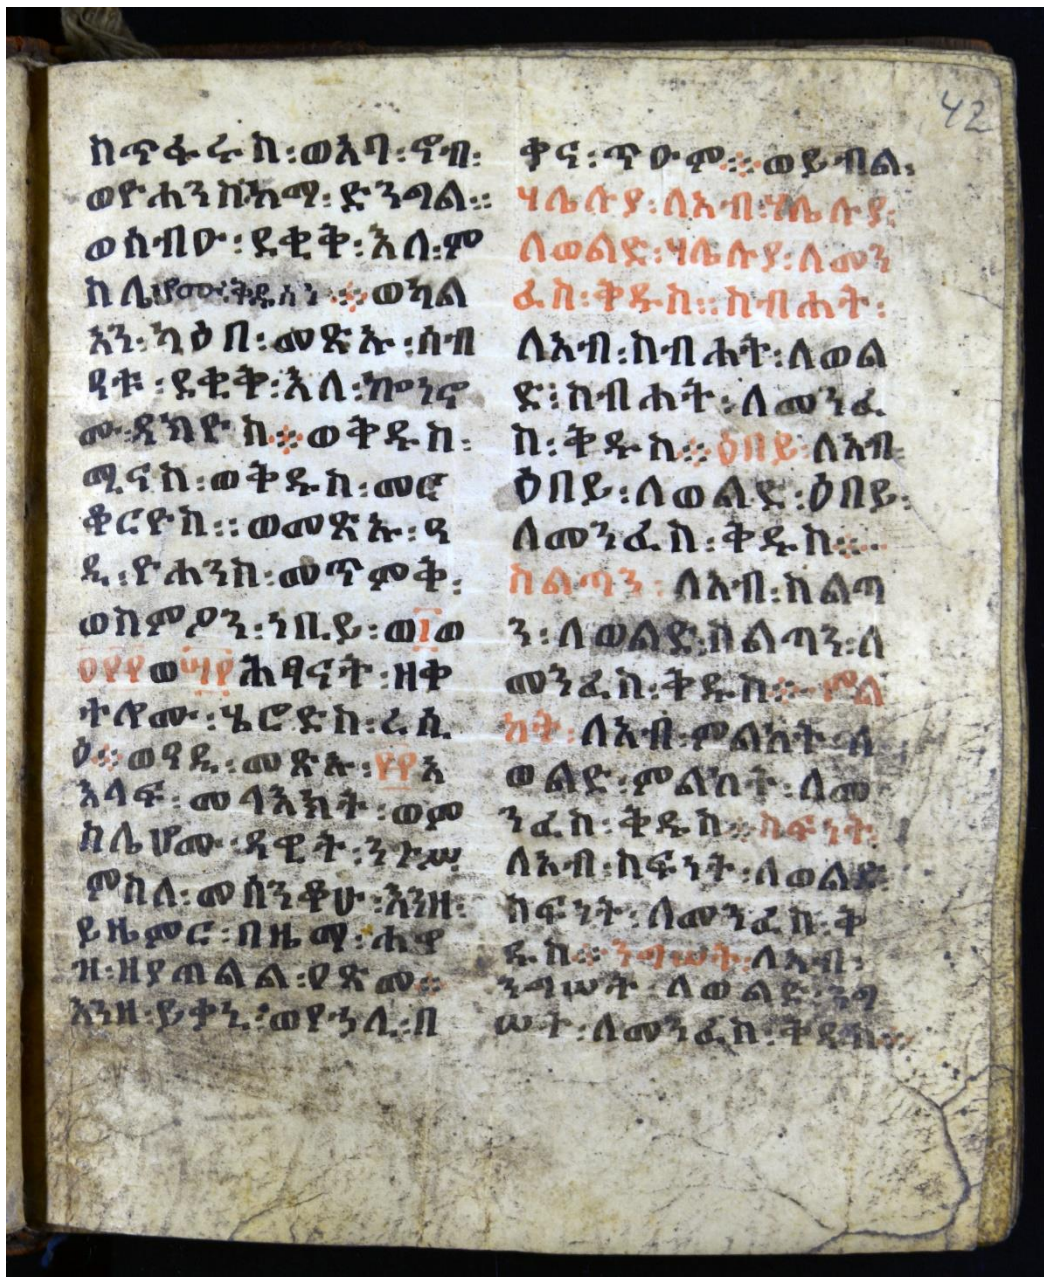 42
ስጥፋሩስ፡ወአባ፡ኖብ፡
ወዮሐንስከማ፡ድንግል።
ወሰብዑ፡ደቂቅ፡እለ፡ም
ስሌሆሙ፡ቅዱሳን።ወካል
አን፡ካዕበ፡መጽኡ፡ሰብ
ዓቱ፡ደቂቅ፡እለ፡ኰነኖ
ሙ፡ዳኬዮስ።ወቅዱስ፡
ሚናስ፡ወቅዱስ፡መር
ቆርዮስ።ወመጽኡ፡ዓ
ዲ፡ዮሐንስ፡መጥምቅ፡
ወስምዖን፡ነቢይ፡ወ፲ወ
ወ፼ሕፃናት፡ዘቀ
ተሎሙ፡ሄሮድስ፡ረሲ
ዕ።ወዓዲ፡መጽኡ፡፼አ
እላፍ፡መላእክት፡ወም
ስሌሆሙ፡ዳዊት፡ንጉሠ
ምስለ፡መሰንቆሁ፡እንዘ፡
ይዜምር፡በዜማ፡ሐዋ
ዝ፡ዘያጠልል፡ዐጽመ።
እንዘ፡ይቃኒ፡ወየኀሊ፡በ
ቃና፡ጥዑም።ወይብል፡
ሃሌሉያ፡ለአብ፡ሃሌሉያ፡
ለወልድ፡ሃሌሉያ፡ለመን
ፈስ፡ቅዱስ።ስብሐት፡
ለአብ፡ስብሐት፡ለወል
ድ፡ስብሐት፡ለመንፈ
ስ፡ቅዱስ።ዕበይ፡ለአብ፡
ዕበይ፡ለወልድ፡ዕበይ፡
ለመንፈስ፡ቅዱስ።
ስልጣን፡ለአብ፡ስልጣ
ን፡ለወልድ፡ስልጣን፡ለ
መንፈስ፡ቅዱስ።ምል
ክት፡ለአብ፡ምልክት፡ለ
ወልድ፡ምልክት፡ለመ
ንፈስ፡ቅዱስ።ስፍነት፡
ለአብ፡ስፍነት፡ለወልድ፡
ስፍነት፡ለመንፈስ፡ቅ
ዱስ።ንግሠት፡ለአብ፡
ንግሠት፡ለወልድ፡ንግ
ሠት፡ለመንፈስ፡ቅዱስ።